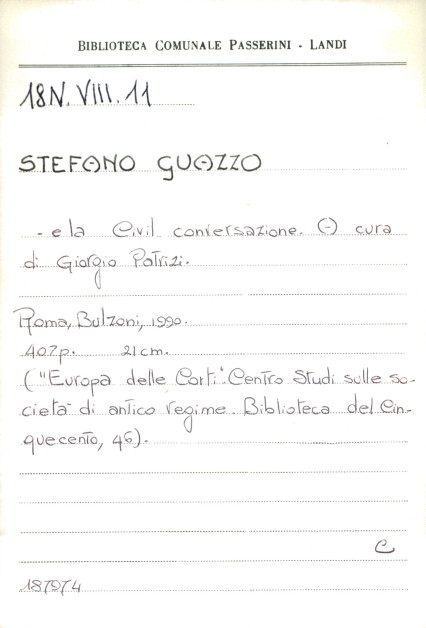 BIBLIOTECA COMUNALE PASSERINI - LANDI
18N.VIII.11
STEFANO GUAZZO
- e la Civil conversazione. A cura
di Giorgio Patrizi.
Roma, Bulzoni, 1990.
407p. 21cm.
("Europa delle Corti". Centro Studi sulle so-
cietà di antico regime. Biblioteca del Cin-
quecento, 46).
C
187974